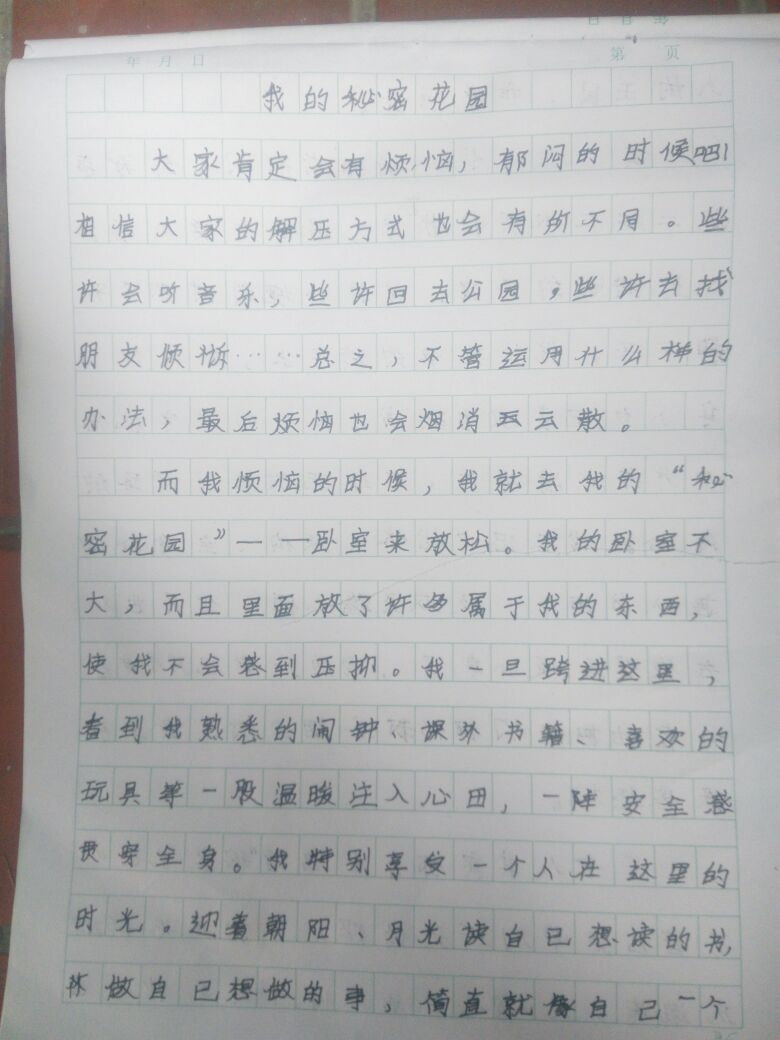 年 月 日
第 页
我的秘密花园
大家肯定会有烦恼，郁闷的时候吧！
相信大家的解压方式也会有所不同。些
许会听音乐，些许回去公园，些许去找
朋友倾诉……总之，不管运用什么样的
办法，最后烦恼也会烟消云散。
而我烦恼的时候，我就去我的“秘
密花园”——卧室来放松。我的卧室不
大，而且里面放了许多属于我的东西，
使我不会感到压抑。我一旦跨进这里，
看到我熟悉的闹钟、课外书籍、喜欢的
玩具等一股温暖注入心田，一阵安全感
贯穿全身。我特别享受一个人在这里的
时光。迎着朝阳、月光读自己想读的书，
做自己想做的事，简直就像自己一个